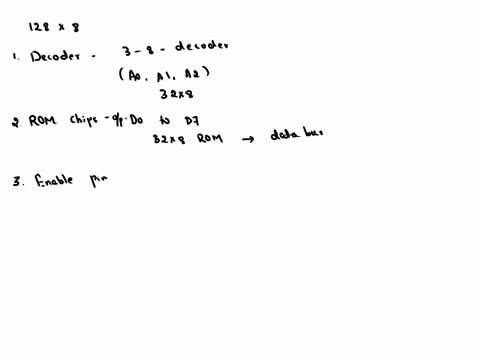 128 x 8
1. Decoder - 3-8-decoder
(A0, A1, A2)
32x8
2. ROM chips - o/p. D0 to D7
32x8 ROM → data bus
3. Enable pin